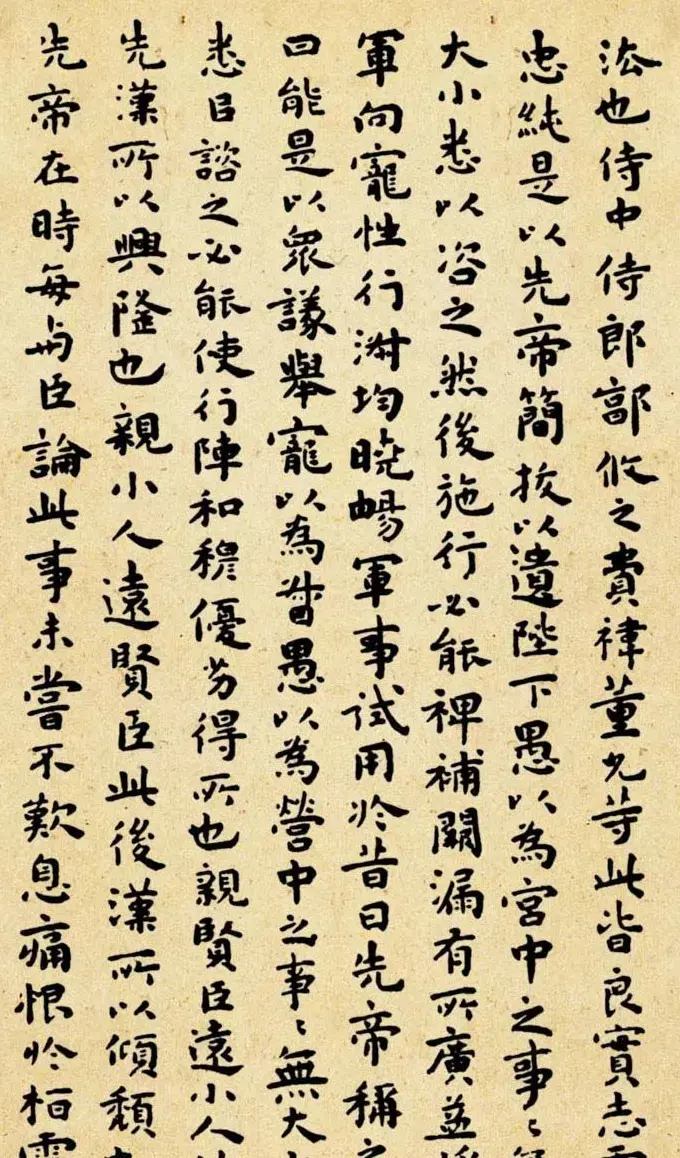 法也侍中侍郎郭攸之費禕董允等此皆良實志
忠純是以先帝簡拔以遺陛下愚以為宮中之事〻
大小悉以咨之然後施行必能裨補闕漏有所廣益
軍向寵性行淑均曉暢軍事試用於昔日先帝稱之
曰能是以眾議舉寵以為督愚以為營中之事〻無大
悉㠯諮之必能使行陣和穆優劣得所也親賢臣遠小人
先漢所以興隆也親小人遠賢臣此後漢所以傾頹
先帝在時每与臣論此事未嘗不歎息痛恨於桓靈